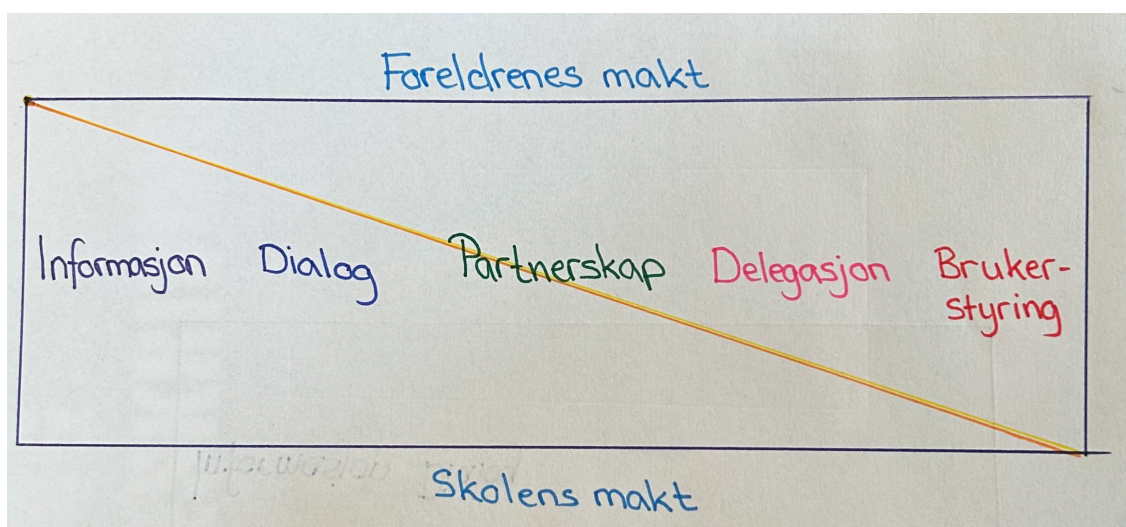 Foreldrenes makt
Informasjon Dialog Partnerskap Delegasjon Bruker-
styring
Skolens makt